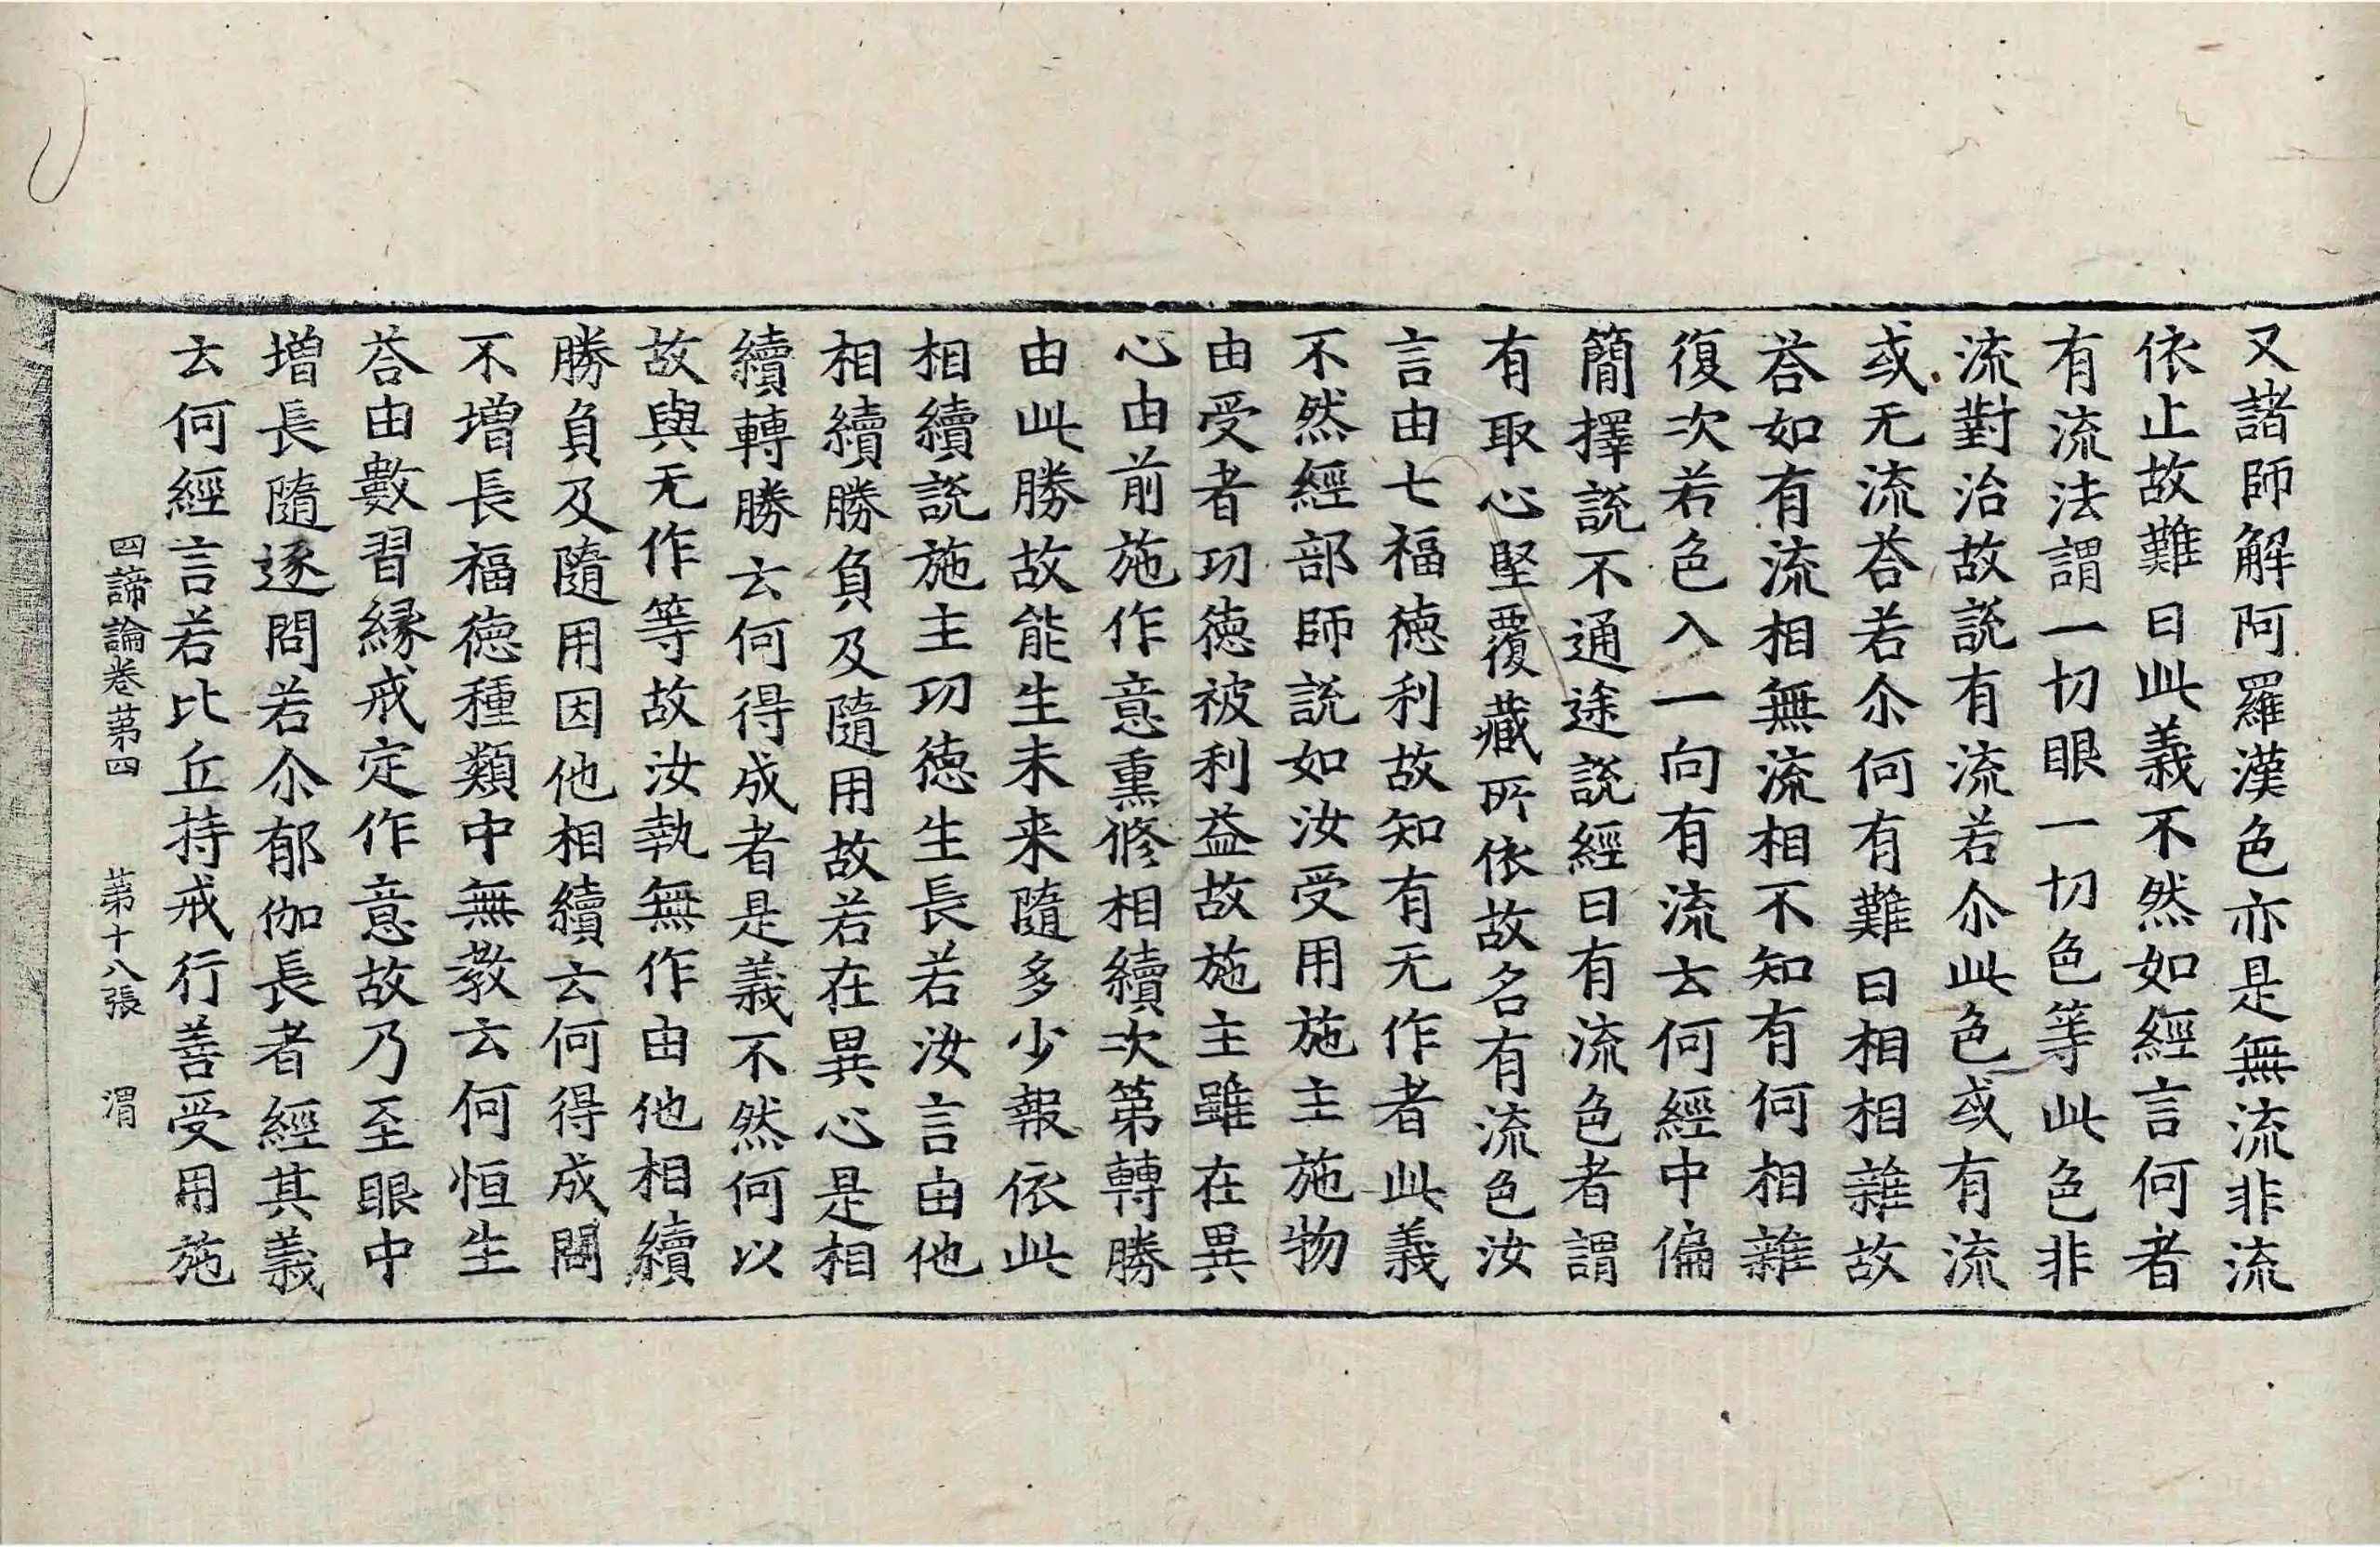 又諸師解阿羅漢色亦是無流非流
依止故難曰此義不然如經言何者
有流法謂一切眼一切色等此色非
流對治故說有流若尒此色或有流
或无流荅若尒何有難曰相相雜故
荅如有流相無流相不知有何相雜
復次若色入一向有流云何經中偏
簡擇說不通途說經曰有流色者謂
有取心堅覆藏所依故名有流色汝
言由七福德利故知有无作者此義
不然經部師說如汝受用施主施物
由受者功德被利益故施主雖在異
心由前施作意熏修相續次第轉勝
由此勝故能生未来隨多少報依此
相續說施主功德生長若汝言由他
相續勝負及隨用故若在異心是相
續轉勝云何得成者是義不然何以
故與无作等故汝執無作由他相續
勝負及隨用因他相續云何得成闘
不增長福德種類中無教云何恒生
荅由數習緣戒定作意故乃至眼中
增長隨逐問若尒郁伽長者經其義
云何經言若比丘持戒行善受用施
四諦論卷苐四　苐十八張　渭